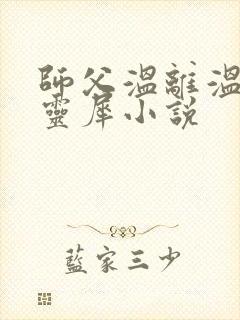 師父溫離溫
靈犀小說
藍家三少